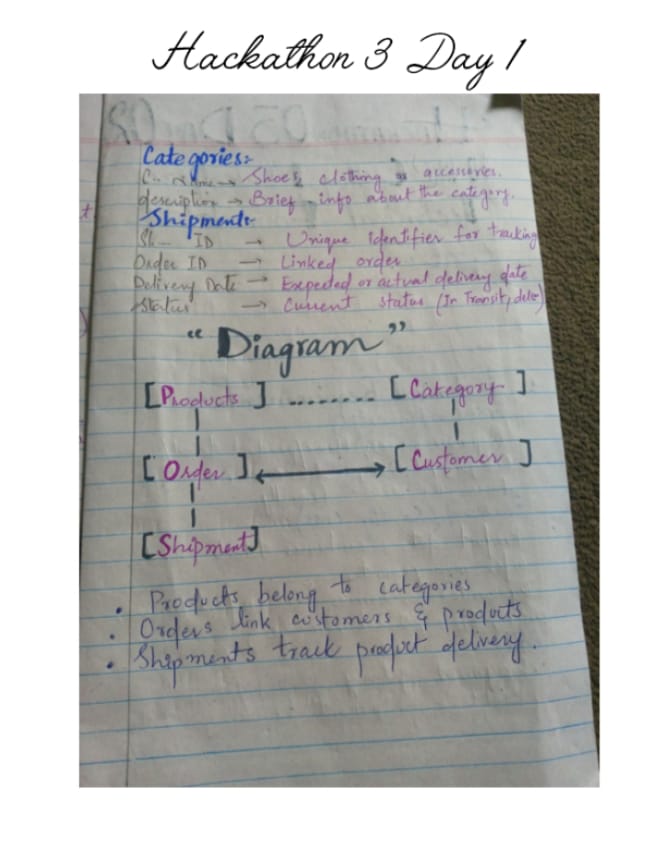 Hackathon 3 Day 1
Categories:-
Name → Shoes, clothing accessories.
description → Brief info about the category.
Shipments
ID → Unique identifier for tracking
Order ID → Linked order
Delivery Date → Expected or actual delivery date
Status → Current status (In Transit, dele)
"Diagram"
[Products] ........ [Category]
[Order] ↔ [Customer]
[Shipment]
• Products belong to categories
• Orders link customers & products
• Shipments track product delivery.